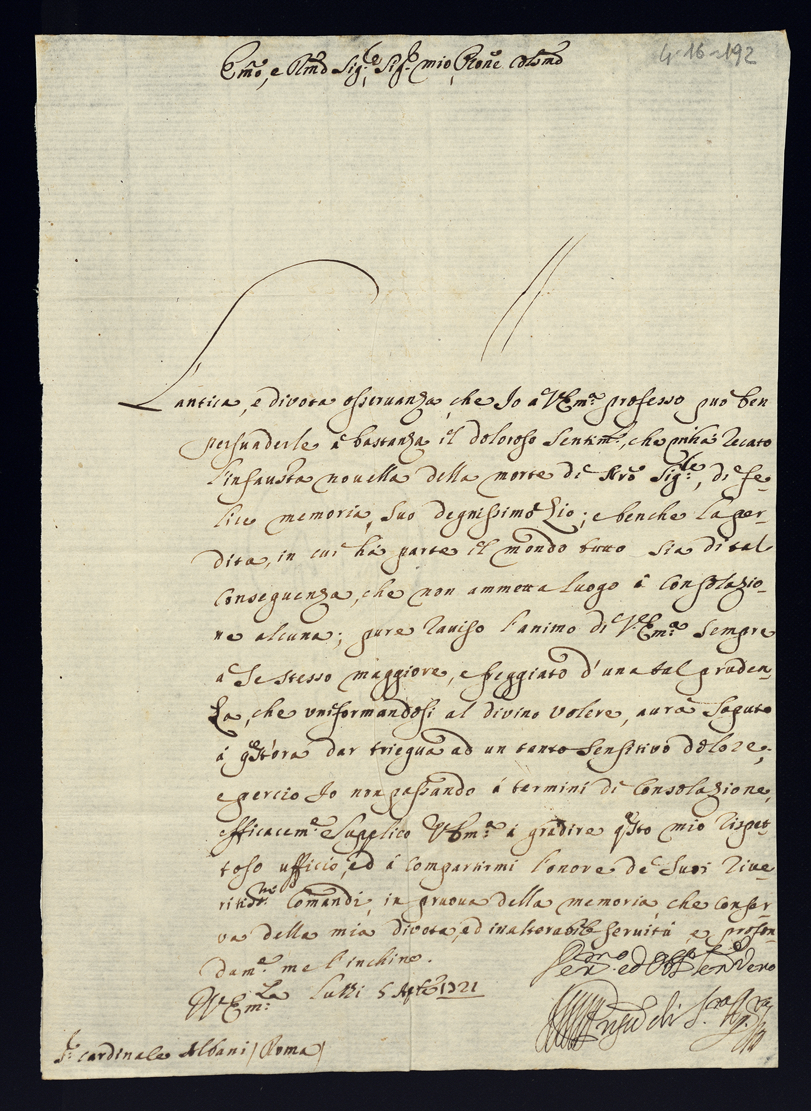 4-16-192
Emo, e Rmo Sig.re Sig.r mio Prone Colmo
L'antica, e divota osservanza, che Io à V. Em.a professo può ben
persuaderle à bastanza il doloroso sentim.to, che m'hà recato
l'infausta novella della morte di Nro Sig.re, di fe-
lice memoria, suo degnissimo Zio; e benche la per-
dita, in cui hà parte il mondo tutto sia di tal
conseguenza, che non ammetta luogo à consolazio-
ne alcuna; pure raviso l'animo di V. Em.a sempre
à se stesso maggiore, e freggiato d'una tal pruden-
za, che uniformandosi al divino volere, aurà saputo
à quest'ora dar triegua ad un tanto sensitivo dolore;
e perciò Io non passando à termini di consolazione,
efficacem.te supplico V. Em.a à gradire q'sto mio rispet-
toso ufficio, ed à compartirmi l'onore de' suoi rive-
ritiss.mi comandi, in pruova della memoria che conser-
va della mia divota, ed inalterabile servitù, e profon-
dam.te me l'inchino.
Di V. Em.za Luzzi 5 Aple 1721
Dev.mo ed Obb.mo Ser.re Vero
S.r Cardinale Albani (Roma)